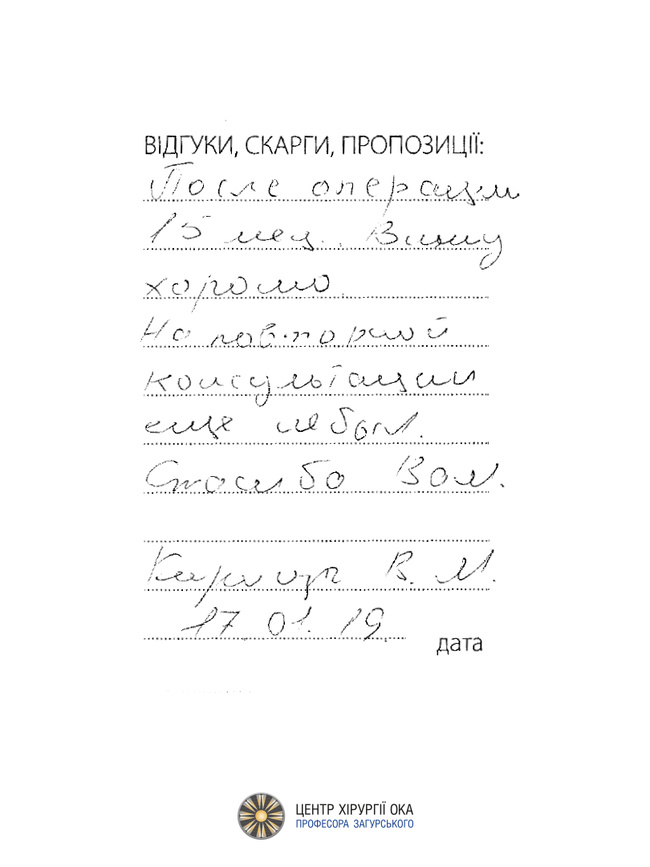 ВІДГУКИ, СКАРГИ, ПРОПОЗИЦІЇ:
После операции
15 мес. Вижу
хорошо.
На повторной
консультации
еще не был.
Спасибо Вам.
В. М.
17.01.19
дата
ЦЕНТР ХІРУРГІЇ ОКА
ПРОФЕСОРА ЗАГУРСЬКОГО